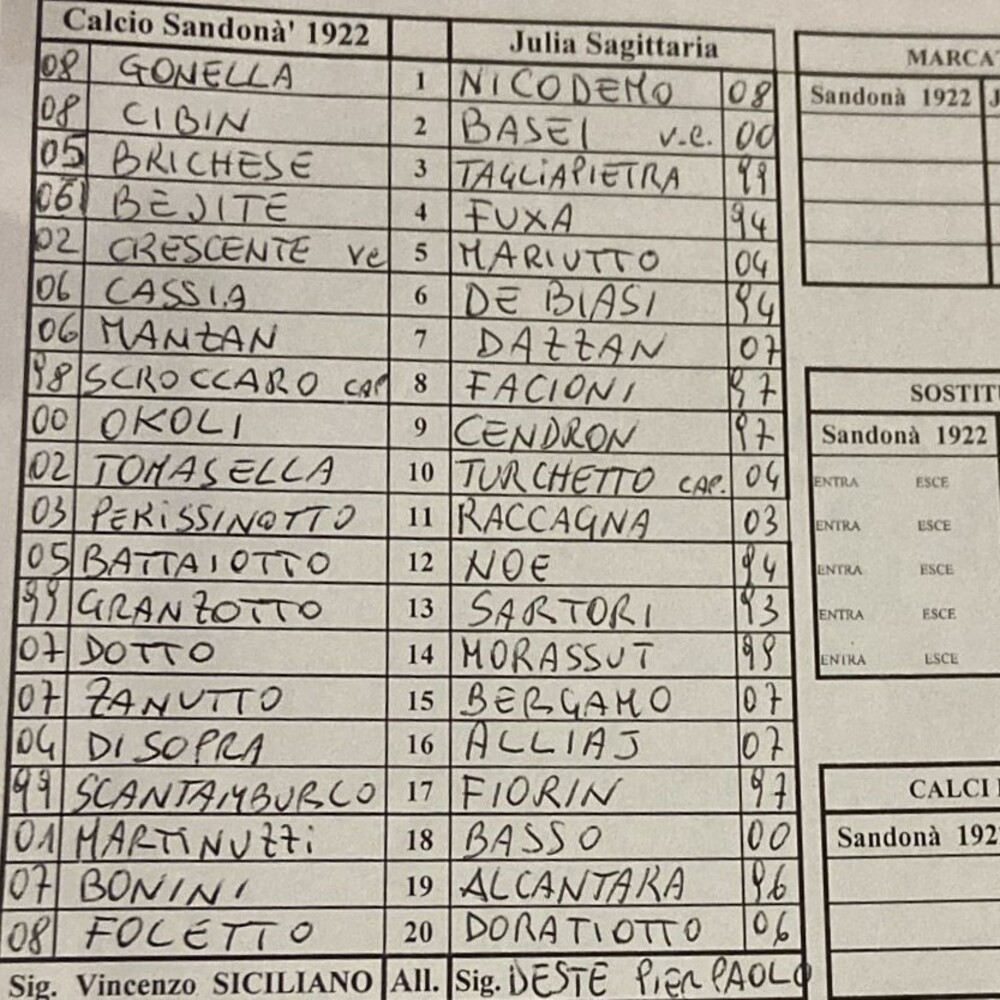 Calcio Sandonà' 1922 Julia Sagittaria
08 GONELLA 1 NICODEMO 08
08 CIBIN 2 BASEI v.c. 00
05 BRICHESE 3 TAGLIAPIETRA 99
06 BEJITE 4 FUXA 94
02 CRESCENTE vc 5 MARIUTTO 04
06 CASSIA 6 DE BIASI 94
06 MANZAN 7 DAZZAN 07
98 SCROCCARO CAP 8 FACIONI 97
00 OKOLI 9 CENDRON 97
02 TOMASELLA 10 TURCHETTO CAP. 04
03 PERISSINOTTO 11 RACCAGNA 03
05 BATTAIOTTO 12 NOE 94
99 GRANZOTTO 13 SARTORI 93
07 DOTTO 14 MORASSUT 99
07 ZANUTTO 15 BERGAMO 07
04 DI SOPRA 16 ALLIAJ 07
99 SCANTAMBURLO 17 FIORIN 97
01 MARTINUZZI 18 BASSO 00
07 BONINI 19 ALCANTARA 96
08 FOLETTO 20 DORATIOTTO 06
Sig. Vincenzo SICILIANO All. Sig. DESTE PIER PAOLO
MARCAT
Sandonà 1922 J
SOSTITU
Sandonà 1922
ENTRA ESCE
ENTRA ESCE
ENTRA ESCE
ENTRA ESCE
ENTRA ESCE
CALCI
Sandonà 192